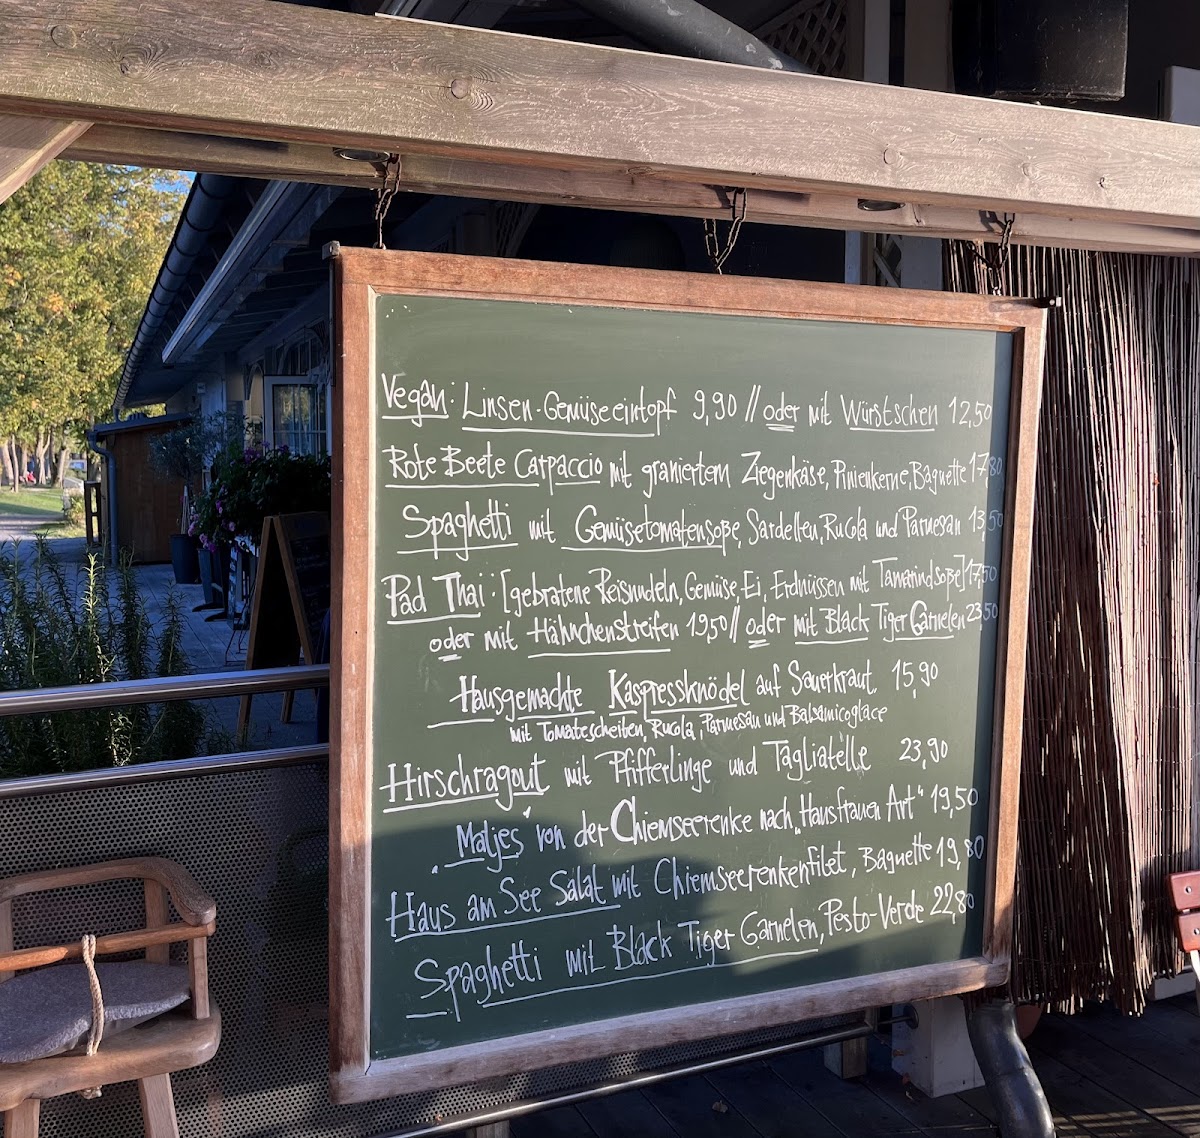 Vegan: Linsen-Gemüseeintopf 9,90 // oder mit Würstschen 12,50
Rote Beete Carpaccio mit graniertem Ziegenkäse, Pinienkerne, Baguette 17,80
Spaghetti mit Gemüsetomatensoße, Sardellen, Rucola und Parmesan 13,50
Pad Thai · [gebratene Reisnudeln, Gemüse, Ei, Erdnüssen mit Tamarindsoße] 17,50
oder mit Hähnchenstreifen 19,50 // oder mit Black Tiger Garnelen 23,50
Hausgemachte Kaspressknödel auf Sauerkraut 15,90
mit Tomatescheiben, Rucola, Parmesan und Balsamicoglace
Hirschragout mit Pfifferlinge und Tagliatelle 23,90
"Matjes" von der Chiemseerenke nach „Hausfrauen Art" 19,50
Haus am See Salat mit Chiemseerenkenfilet, Baguette 19,80
Spaghetti mit Black Tiger Garnelen, Pesto-Verde 22,80